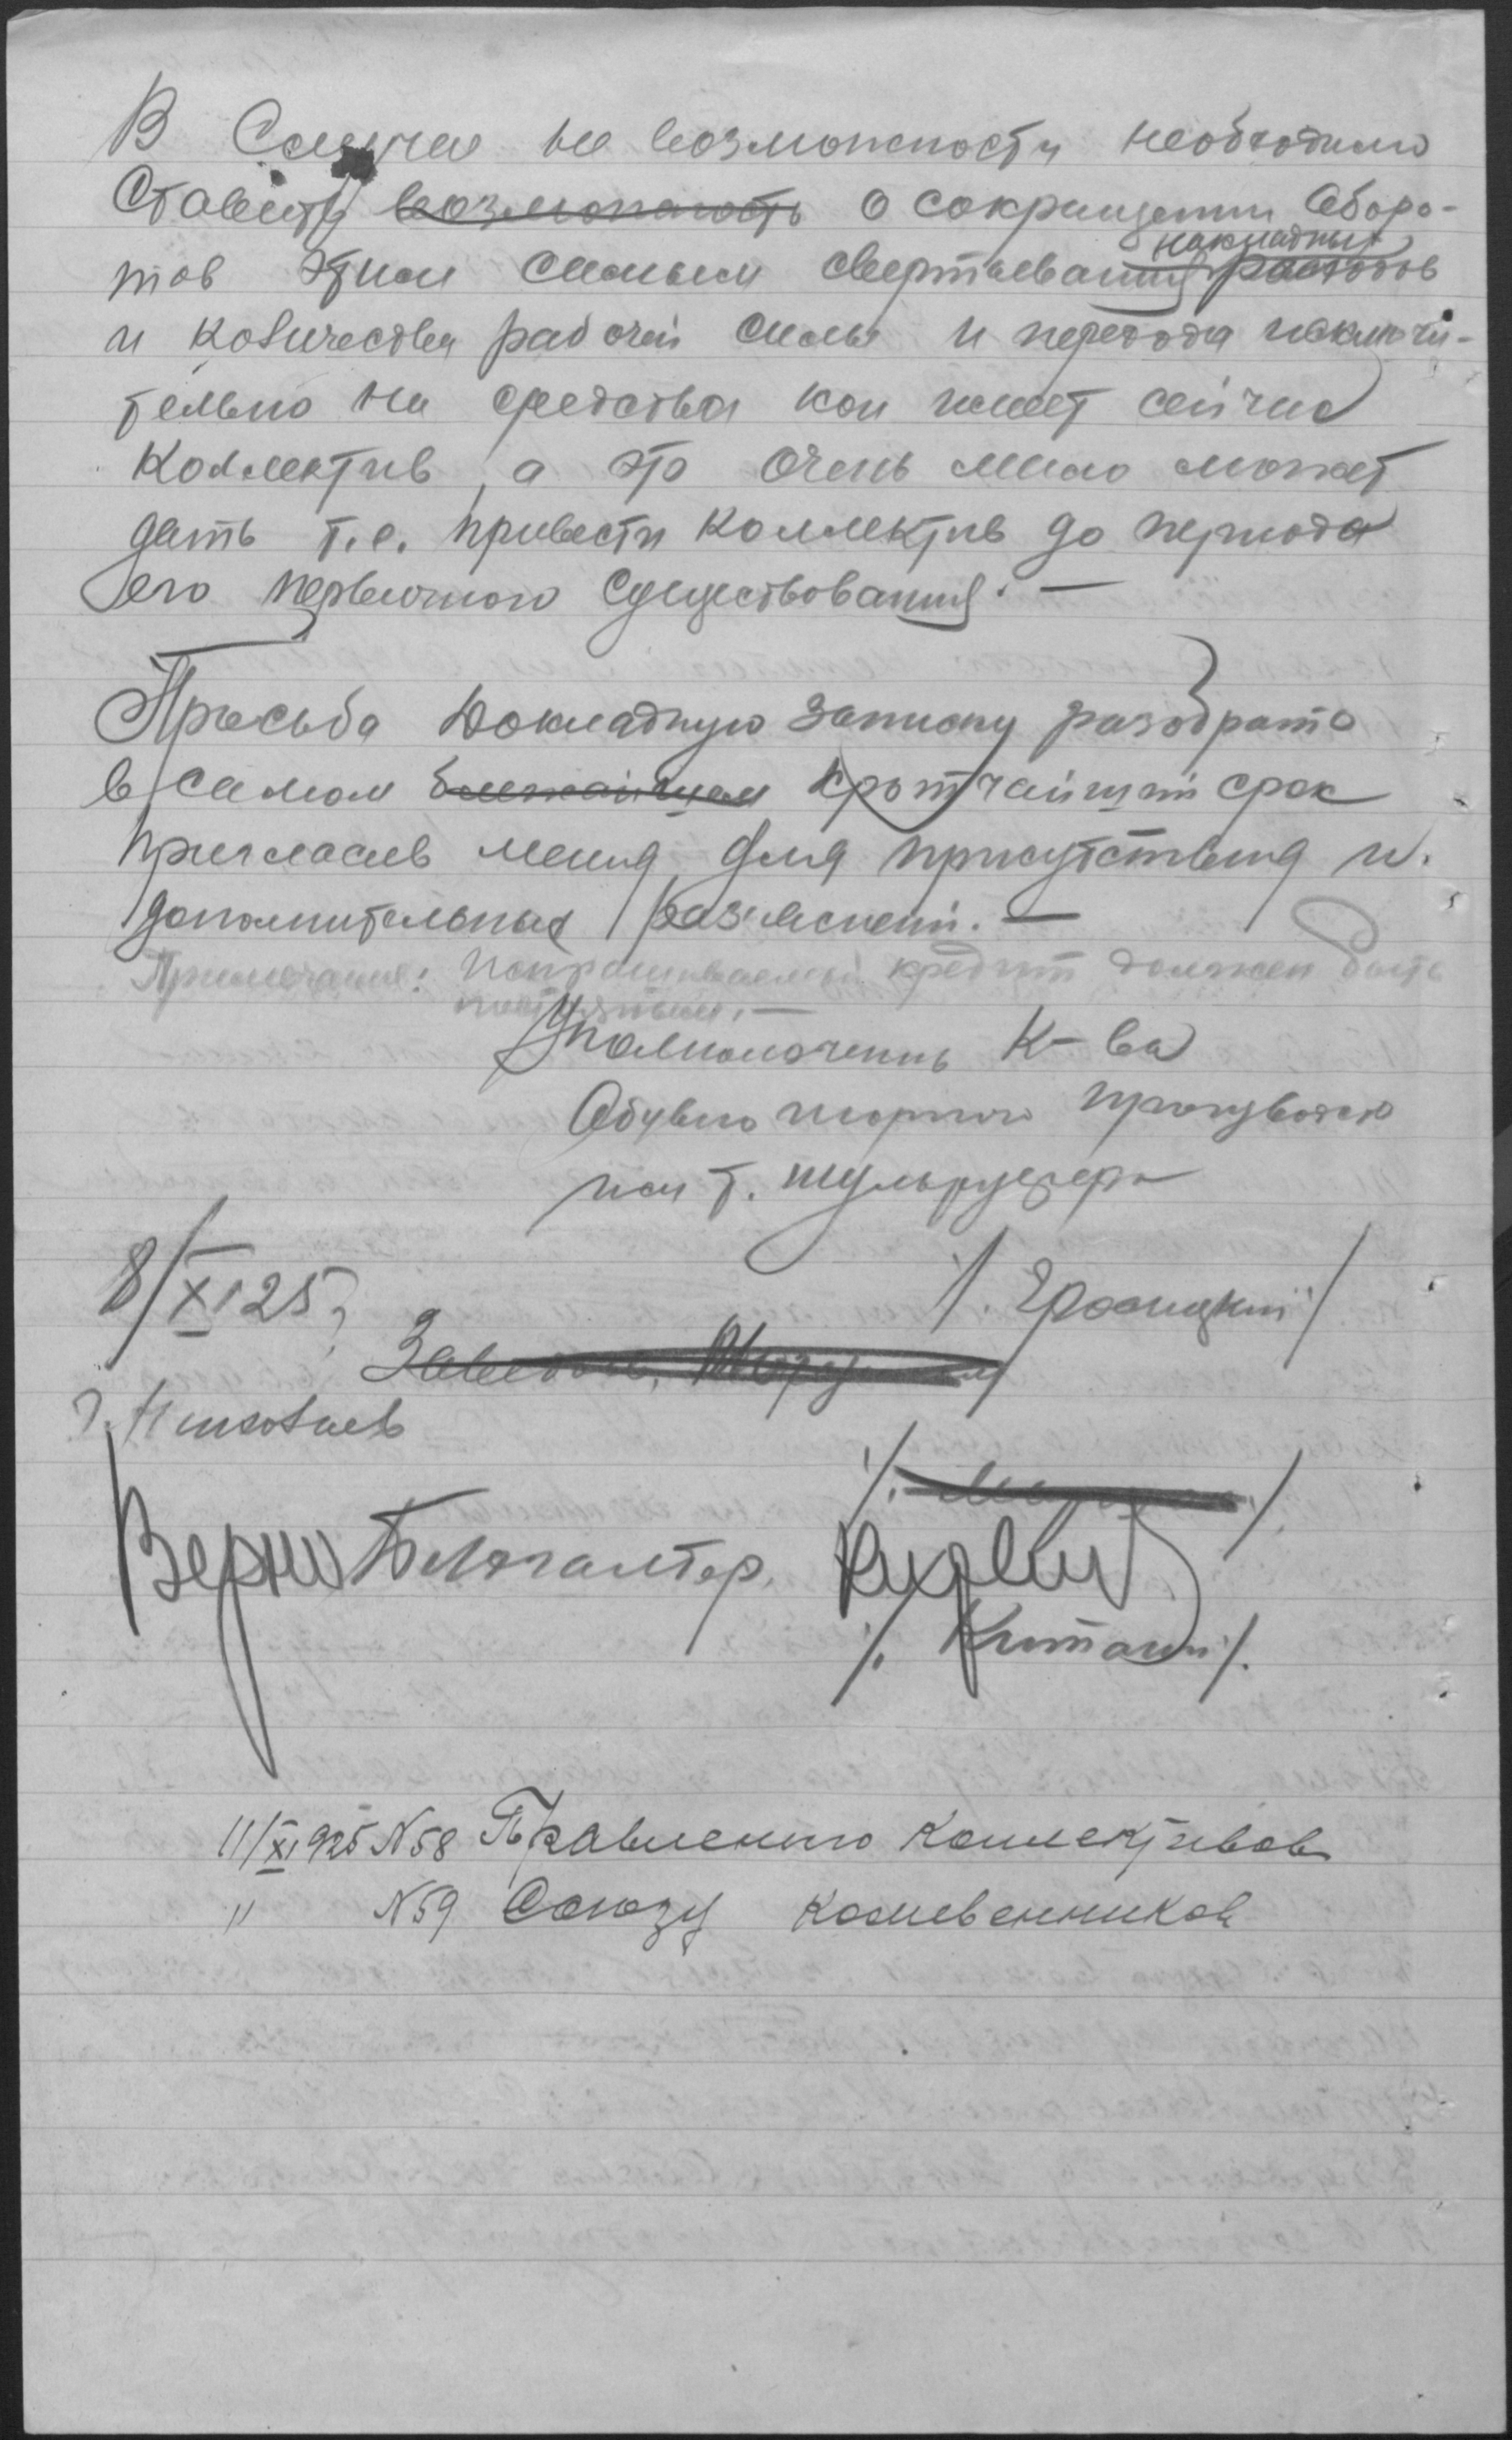 В Случае не возможности необходимо
Ставить возможность о сокращении Оборо-
накладных
тов этим самым свертывания расходов
и количества рабочей силы и перехода исключи-
тельно на средства кои имеет сейчас
Коллектив, а это очень мало может
дать т.е. привести Коллектив до периода
его первичного Существования. —
Просьба Докладную Записку разобрать
в самом ближайшем кротчайший срок
пригласив меня для присутствия и
дополнительных разъяснений. —
Примечание: Испрашиваемый кредит должен быть
Уполномоченный К-ва
Обувно шорного производства
им т.
8/XI 25 г.
Заведыв.
Николаев
Верно Бухгалтер.
11/XI 925 N 58 Правлению Коллективов
" N 59 Союзу кожевенников